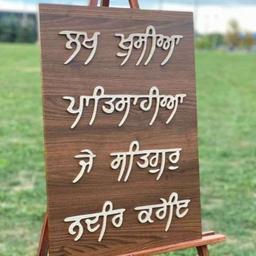 ਲਖ ਖੁਸੀਆ
ਪਾਤਿਸਾਹੀਆ
ਜੇ ਸਤਿਗੁਰੁ
ਨਦਰਿ ਕਰੇਇ